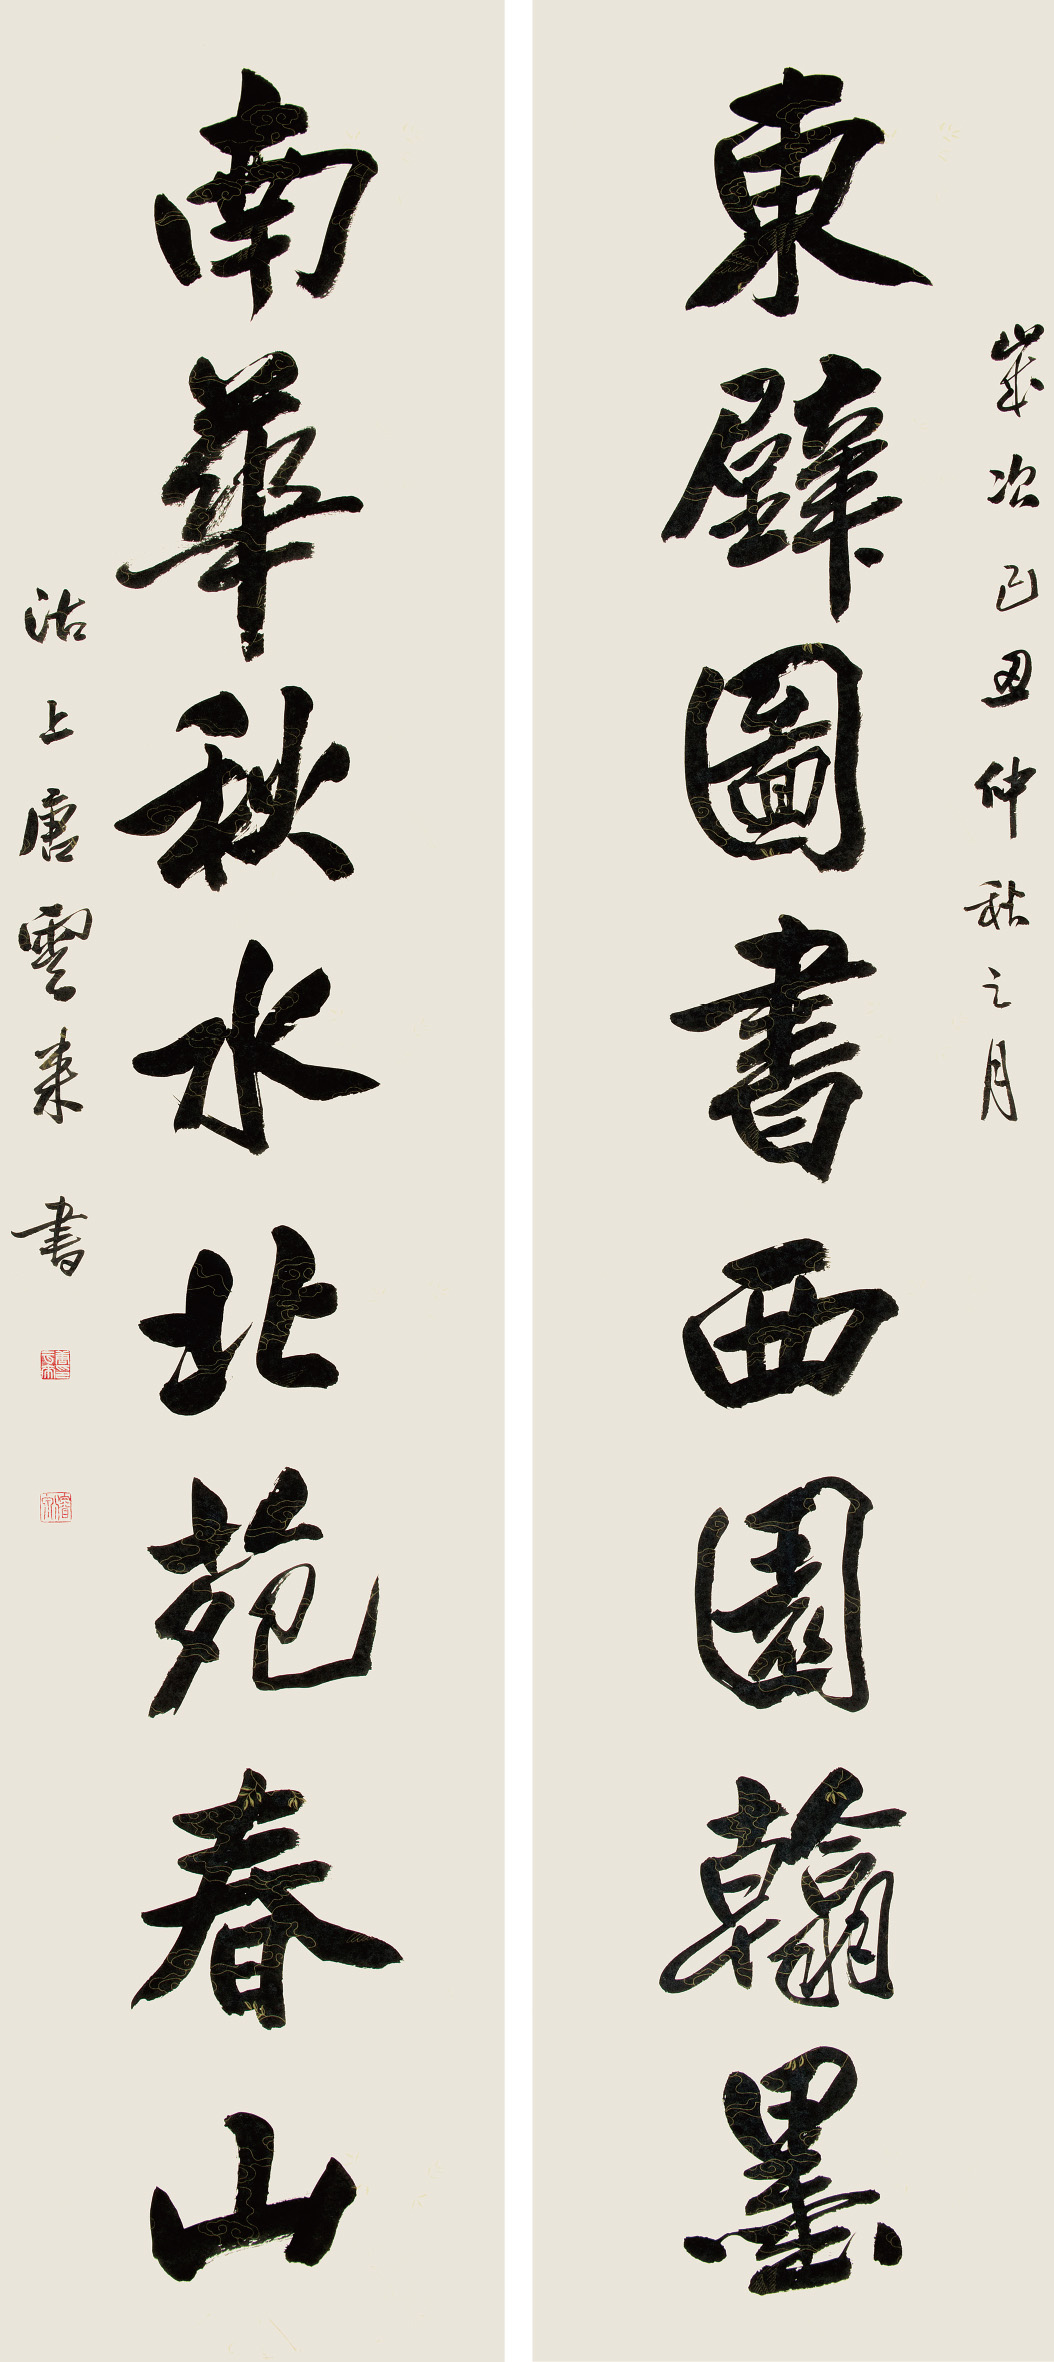 歲次己丑仲秋之月
東壁圖書西園翰墨
南華秋水北苑春山
沽上唐雲來書